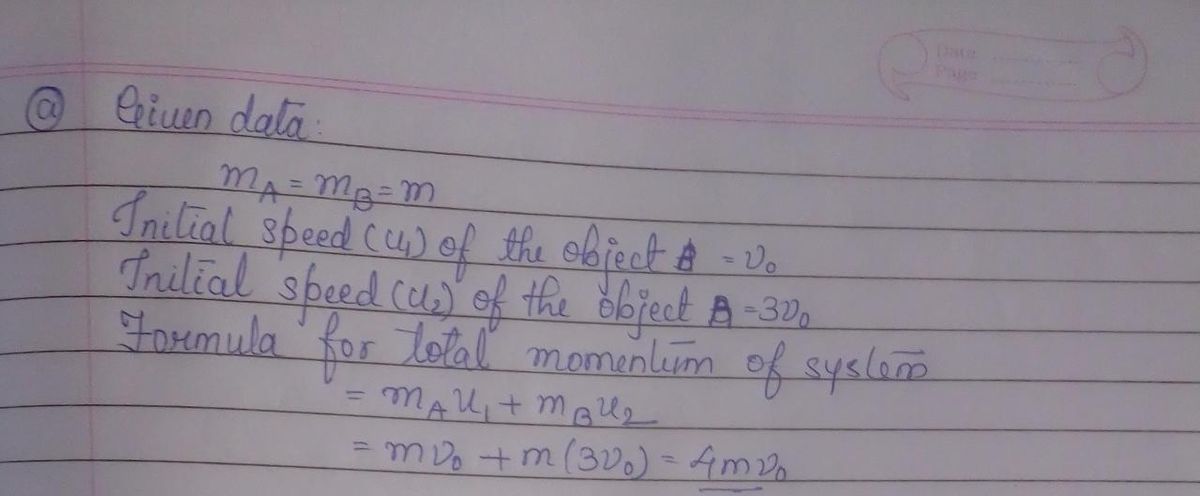 Date ............
Page ............
ⓐ Given data:
m_A = m_B = m
Initial speed (u₁) of the object = v₀
Initial speed (u₂) of the object = 3v₀
Formula for total momentum of system
= m_A u₁ + m_B u₂
= mv₀ + m(3v₀) = 4mv₀